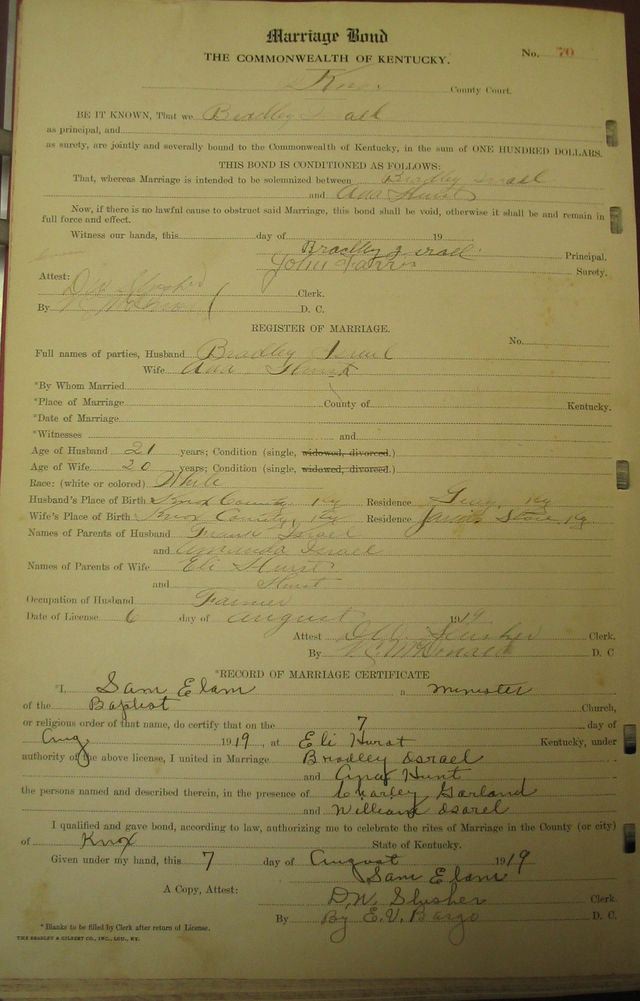 Marriage Bond
THE COMMONWEALTH OF KENTUCKY.
No. 70
Knox County Court.
BE IT KNOWN, That we Bradley Israel
as principal, and
as surety, are jointly and severally bound to the Commonwealth of Kentucky, in the sum of ONE HUNDRED DOLLARS.
THIS BOND IS CONDITIONED AS FOLLOWS:
That, whereas Marriage is intended to be solemnized between Bradley Israel
and Ada Hurst
Now, if there is no lawful cause to obstruct said Marriage, this bond shall be void, otherwise it shall be and remain in
full force and effect.
Witness our hands, this day of 19
Bradley Israel Principal.
John Farris Surety.
Attest:
D. W. Slusher Clerk.
By D. C.
REGISTER OF MARRIAGE.
No.
Full names of parties, Husband Bradley Israel
Wife Ada Hurst
*By Whom Married
*Place of Marriage County of Kentucky.
*Date of Marriage
*Witnesses and
Age of Husband 21 years; Condition (single, widowed, divorced.)
Age of Wife 20 years; Condition (single, widowed, divorced.)
Race: (white or colored) White
Husband's Place of Birth Knox County Ky Residence Gray, Ky
Wife's Place of Birth Knox County, Ky Residence Store Ky.
Names of Parents of Husband Frank Israel
and Israel
Names of Parents of Wife Eli Hurst
and Hurst
Occupation of Husband Farmer
Date of License 6 day of August 1919
Attest D. W. Slusher Clerk.
By McDonald D. C
*RECORD OF MARRIAGE CERTIFICATE
*I, Sam Elam a minister
of the Baptist Church,
or religious order of that name, do certify that on the 7 day of
Aug 1919, at Eli Hurst Kentucky, under
authority of the above license, I united in Marriage Bradley Israel
and Hunt
the persons named and described therein, in the presence of Charley Garland
and William Isarel
I qualified and gave bond, according to law, authorizing me to celebrate the rites of Marriage in the County (or city)
of Knox State of Kentucky.
Given under my hand, this 7 day of August 1919
Sam Elam
A Copy, Attest: D. W. Slusher Clerk.
By By E. V. Bargo D. C.
*Blanks to be filled by Clerk after return of License.
THE BRADLEY & GILBERT CO., INC., LOU., KY.